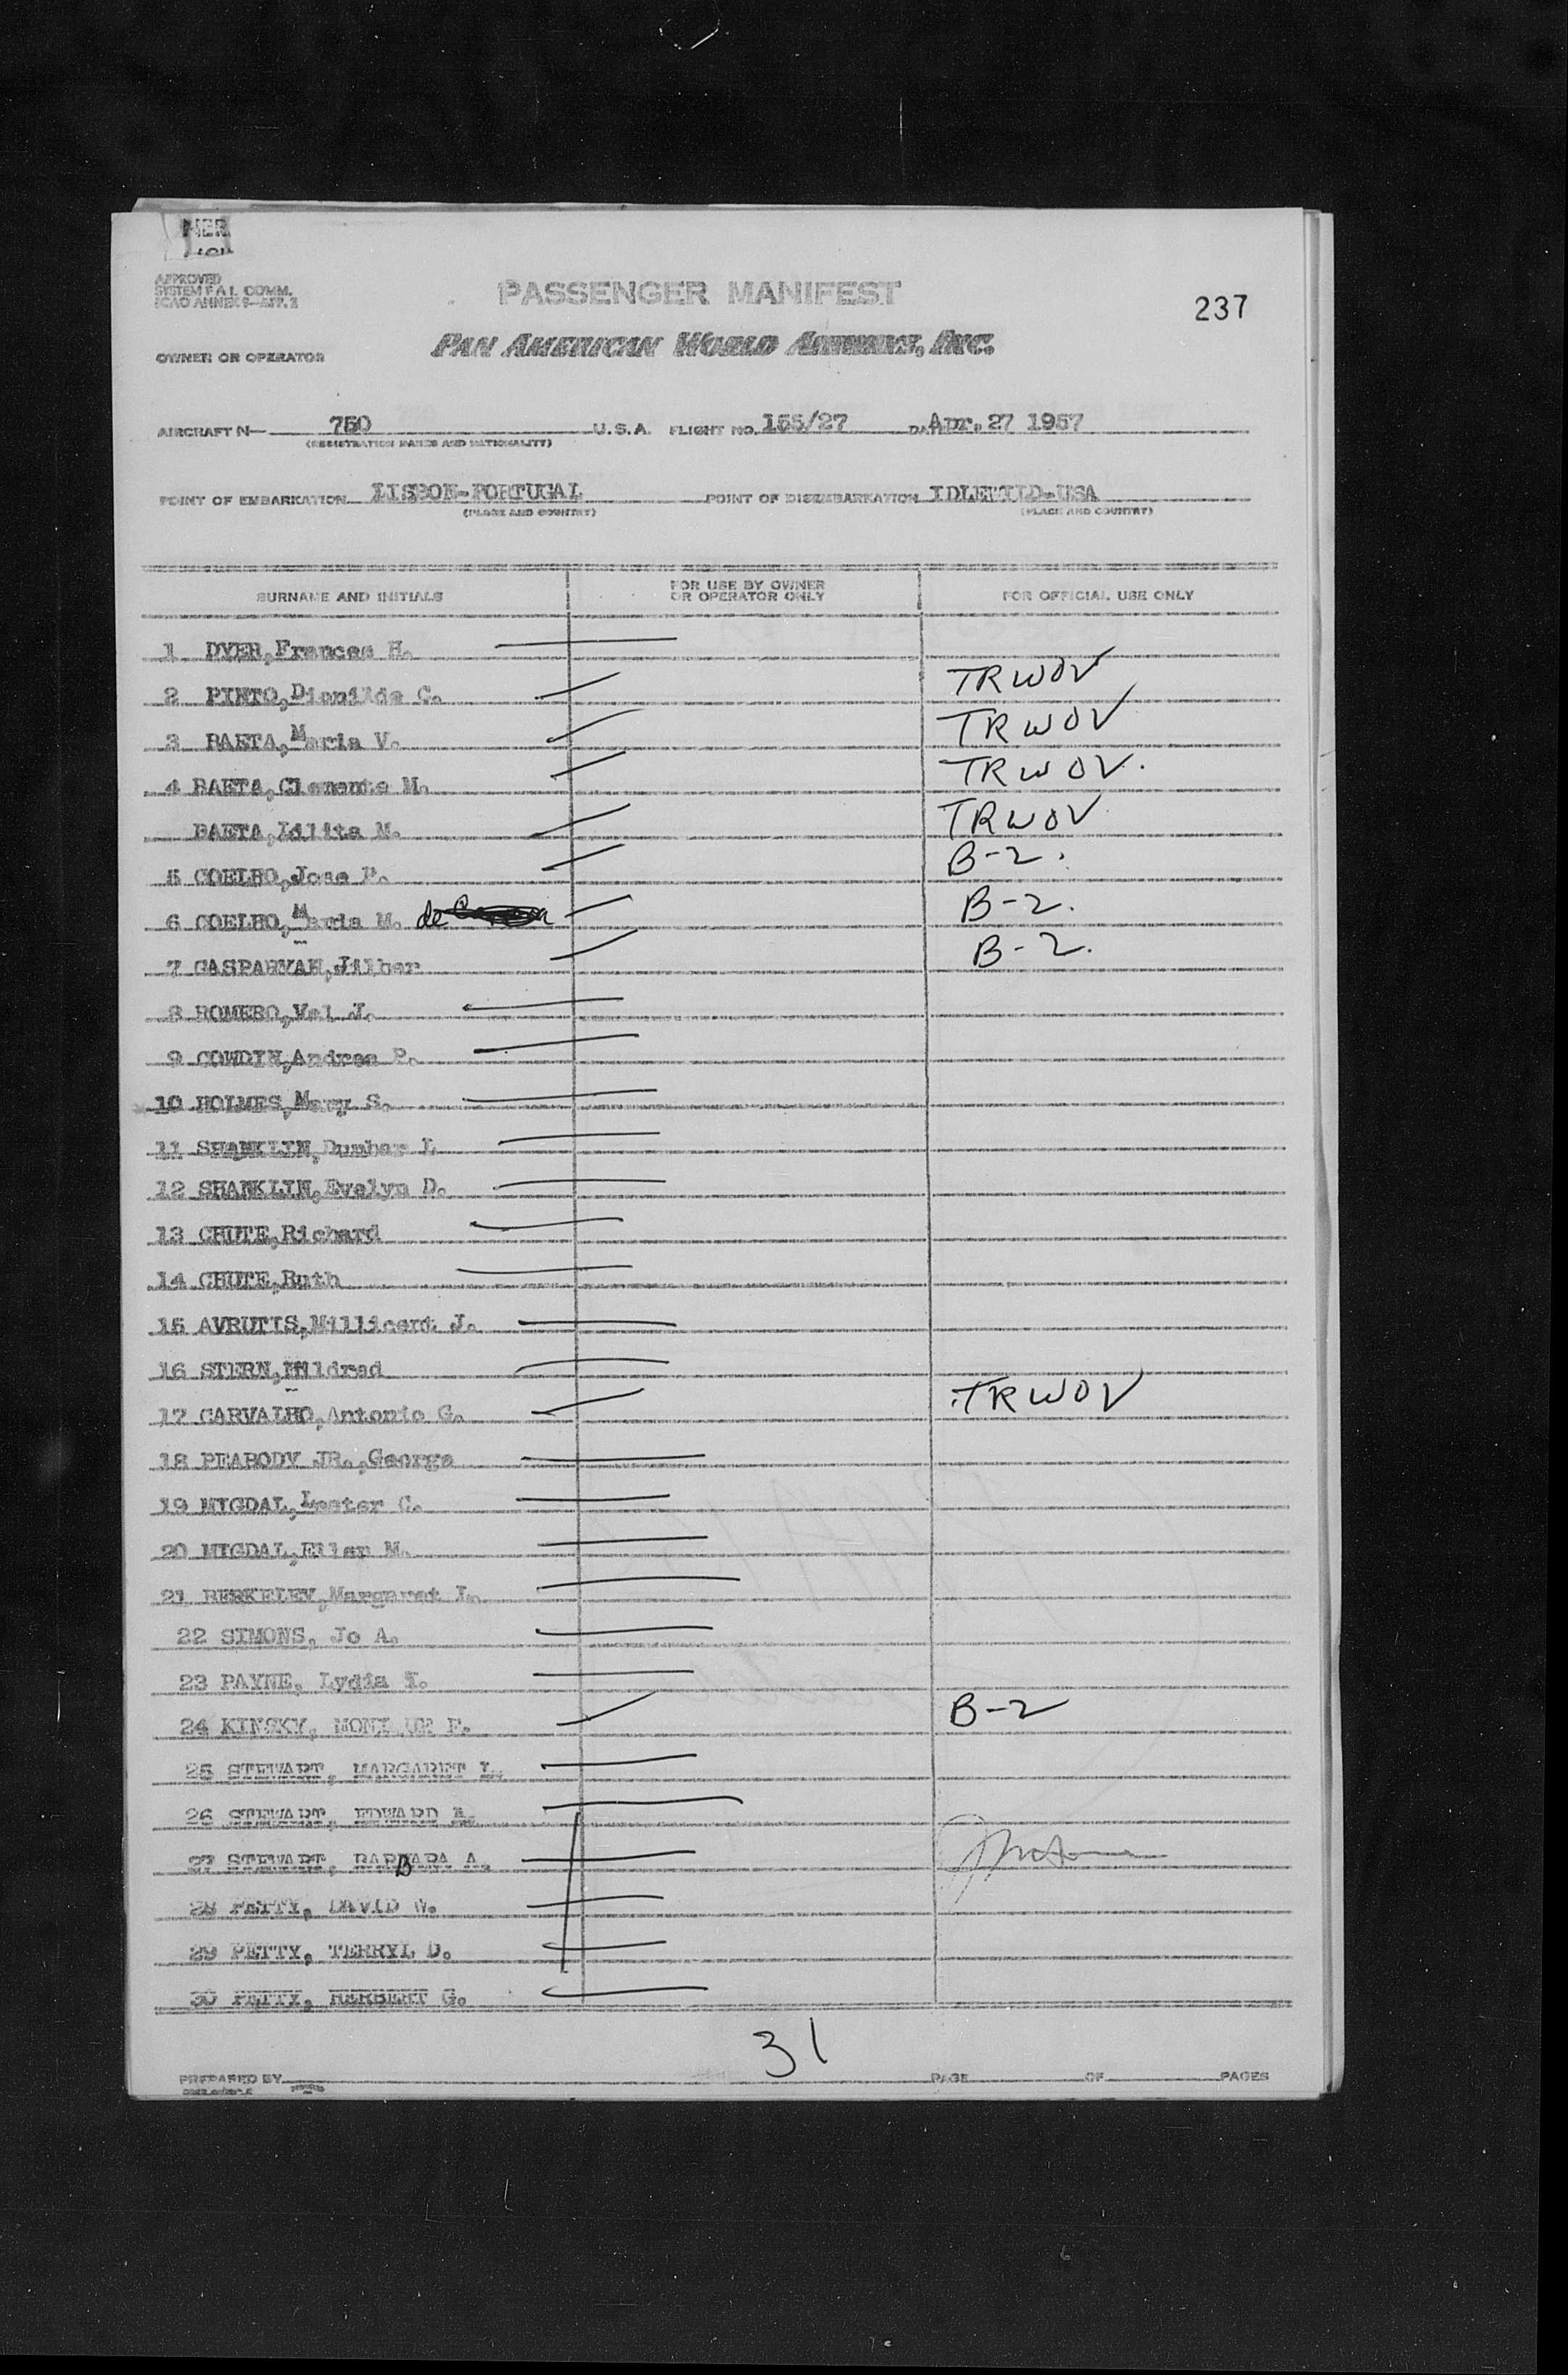 APPROVED
SYSTEM F A L COMM.
ICAO ANNEX 9—APP. 3
PASSENGER MANIFEST
237
OWNER OR OPERATOR
PAN AMERICAN WORLD AIRWAYS, INC.
AIRCRAFT N— 750 U.S.A. FLIGHT NO. 155/27 DATE Apr. 27 1957
(REGISTRATION MARKS AND NATIONALITY)
POINT OF EMBARKATION LISBON-PORTUGAL POINT OF DISEMBARKATION IDLEWILD-USA
(PLACE AND COUNTRY) (PLACE AND COUNTRY)
SURNAME AND INITIALS FOR USE BY OWNER OR OPERATOR ONLY FOR OFFICIAL USE ONLY
1 DYER, Frances H.
2 PINTO, Dionilde C. TRWOV
3 BAETA, Maria V. TRWOV
4 BAETA, Clemente M. TRWOV.
BAETA, Idlita M. TRWOV
5 COELHO, Jose P. B-2.
6 COELHO, Maria M. de B-2.
7 GASPARYAN, Jilber B-2.
8 ROMERO, Val J.
9 COWDIN, Andrea P.
10 HOLMES, Mary S.
11 SHANKLIN, Dunbar I
12 SHANKLIN, Evelyn D.
13 CHUTE, Richard
14 CHUTE, Ruth
15 AVRUTIS, Millicent J.
16 STERN, Mildred
17 CARVALHO, Antonio G. TRWOV
18 PEABODY JR., George
19 MIGDAL, Lester C.
20 MIGDAL, Ellen M.
21 BERKELEY, Margaret L.
22 SIMONS, Jo A.
23 PAYNE, Lydia
24 KINSKY, F. B-2
25 STEWART, MARGARET L.
26 STEWART, EDWARD A.
27 STEWART, BARBARA A.
28 PETTY, DAVID W.
29 PETTY, TERRYL D.
30 PETTY, HERBERT G.
31
PREPARED BY PAGE OF PAGES